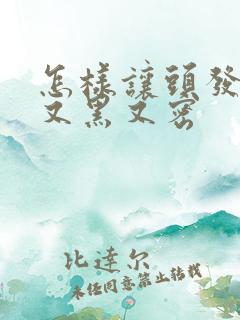 怎樣讓頭發
又黑又密
比達尔
未经同意禁止转载